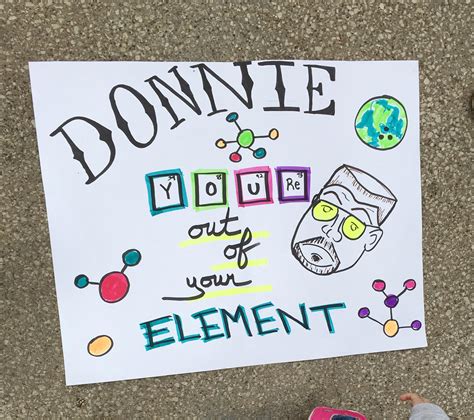 DONNIE
Y O U Re
out
of
your
ELEMENT